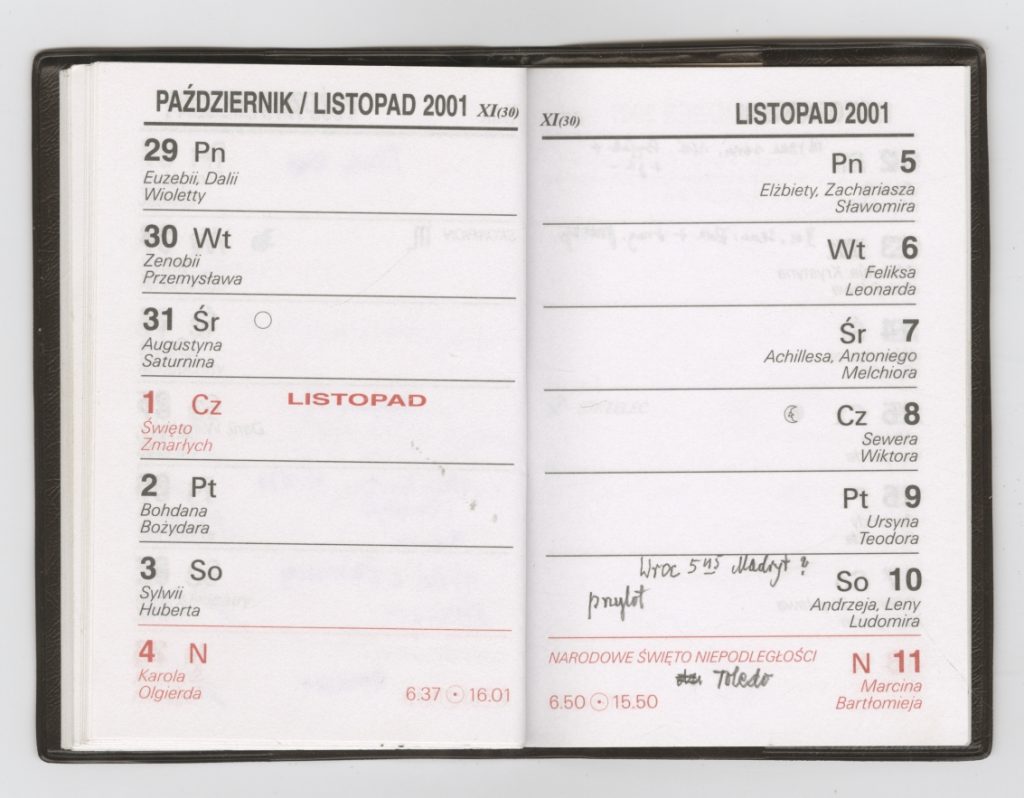 PAŹDZIERNIK / LISTOPAD 2001 XI(30)
29 Pn
Euzebii, Dalii
Wioletty
30 Wt
Zenobii
Przemysława
31 Śr
Augustyna
Saturnina
1 Cz LISTOPAD
Święto
Zmarłych
2 Pt
Bohdana
Bożydara
3 So
Sylwii
Huberta
4 N
Karola
Olgierda
6.37 16.01
XI(30) LISTOPAD 2001
Pn 5
Elżbiety, Zachariasza
Sławomira
Wt 6
Feliksa
Leonarda
Śr 7
Achillesa, Antoniego
Melchiora
Cz 8
Sewera
Wiktora
Pt 9
Ursyna
Teodora
Wroc 5 45 Madryt ?
przylot
So 10
Andrzeja, Leny
Ludomira
NARODOWE ŚWIĘTO NIEPODLEGŁOŚCI
N 11
Toledo
Marcina
Bartłomieja
6.50 15.50